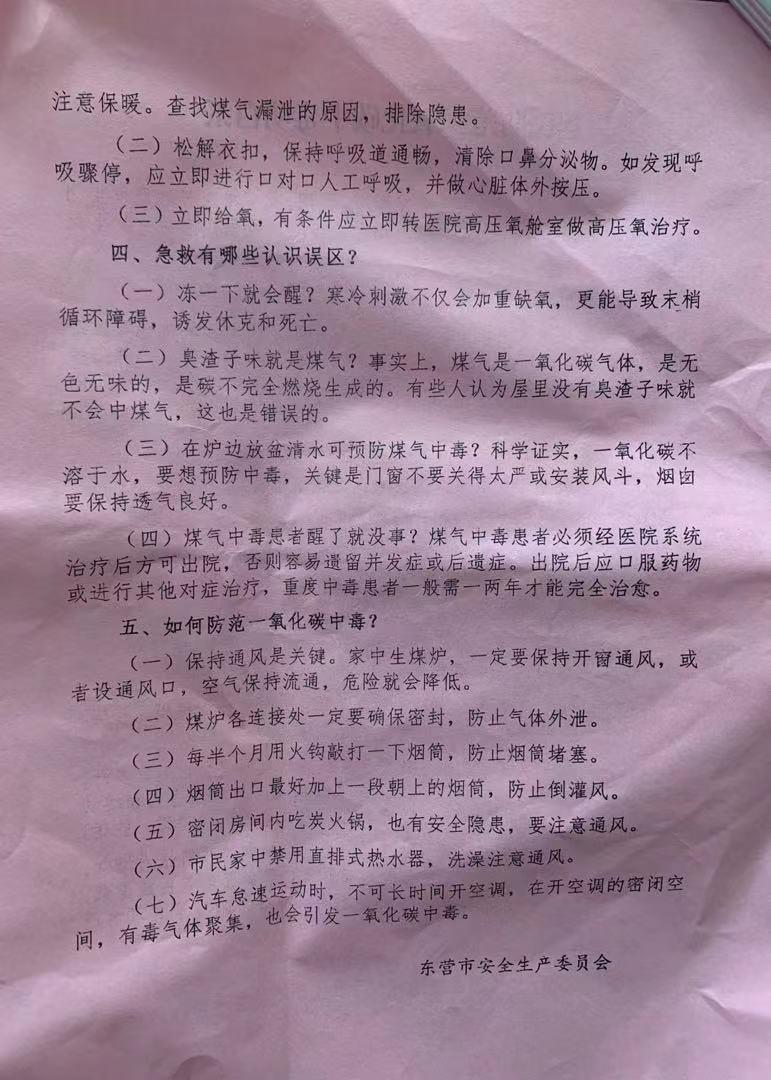 注意保暖。查找煤气漏泄的原因，排除隐患。
（二）松解衣扣，保持呼吸道通畅，清除口鼻分泌物。如发现呼
吸骤停，应立即进行口对口人工呼吸，并做心脏体外按压。
（三）立即给氧，有条件应立即转医院高压氧舱室做高压氧治疗。
四、急救有哪些认识误区？
（一）冻一下就会醒？寒冷刺激不仅会加重缺氧，更能导致末梢
循环障碍，诱发休克和死亡。
（二）臭渣子味就是煤气？事实上，煤气是一氧化碳气体，是无
色无味的，是碳不完全燃烧生成的。有些人认为屋里没有臭渣子味就
不会中煤气，这也是错误的。
（三）在炉边放盆清水可预防煤气中毒？科学证实，一氧化碳不
溶于水，要想预防中毒，关键是门窗不要关得太严或安装风斗，烟囱
要保持透气良好。
（四）煤气中毒患者醒了就没事？煤气中毒患者必须经医院系统
治疗后方可出院，否则容易遗留并发症或后遗症。出院后应口服药物
或进行其他对症治疗，重度中毒患者一般需一两年才能完全治愈。
五、如何防范一氧化碳中毒？
（一）保持通风是关键。家中生煤炉，一定要保持开窗通风，或
者设通风口，空气保持流通，危险就会降低。
（二）煤炉各连接处一定要确保密封，防止气体外泄。
（三）每半个月用火钩敲打一下烟筒，防止烟筒堵塞。
（四）烟筒出口最好加上一段朝上的烟筒，防止倒灌风。
（五）密闭房间内吃炭火锅，也有安全隐患，要注意通风。
（六）市民家中禁用直排式热水器，洗澡注意通风。
（七）汽车怠速运动时，不可长时间开空调，在开空调的密闭空
间，有毒气体聚集，也会引发一氧化碳中毒。
东营市安全生产委员会